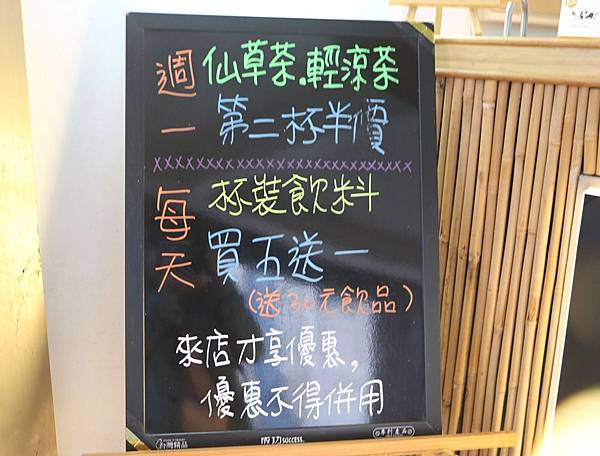 週一
仙草茶.輕涼茶
第二杯半價
xxxxxxxxxxxxxxxxxxxxxxxxxxx
每天
杯裝飲料
買五送一
(送30元飲品)
來店才享優惠,
優惠不得併用
台灣精品
成功 success.
專利產品